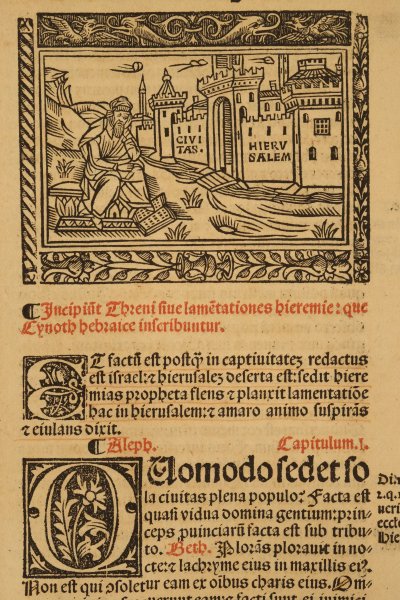 CIVI
TAS.
HIERU
SALEM
¶ Incipiũt Threni siue lamẽtationes hieremie: que
Cynoth hebraice inscribuntur.
ET factũ est postq̃ in captiuitatez redactus
est israel: ⁊ hierusalez deserta est: sedit hiere
mias propheta flens ⁊ planxit lamentatiõe
hac in hierusalem: ⁊ amaro animo suspirãs
⁊ eiulans dixit.
¶ Aleph. Capitulum.I.
QUomodo sedet so
la ciuitas plena populo? Facta est
quasi vidua domina gentium: prin=
ceps ꝓuinciarũ facta est sub tribu
to. Beth. Plorãs plorauit in no=
cte: ⁊ lachryme eius in maxillis ei⁹.
Non est qui ꝯsoletur eam ex oĩbus charis eius.